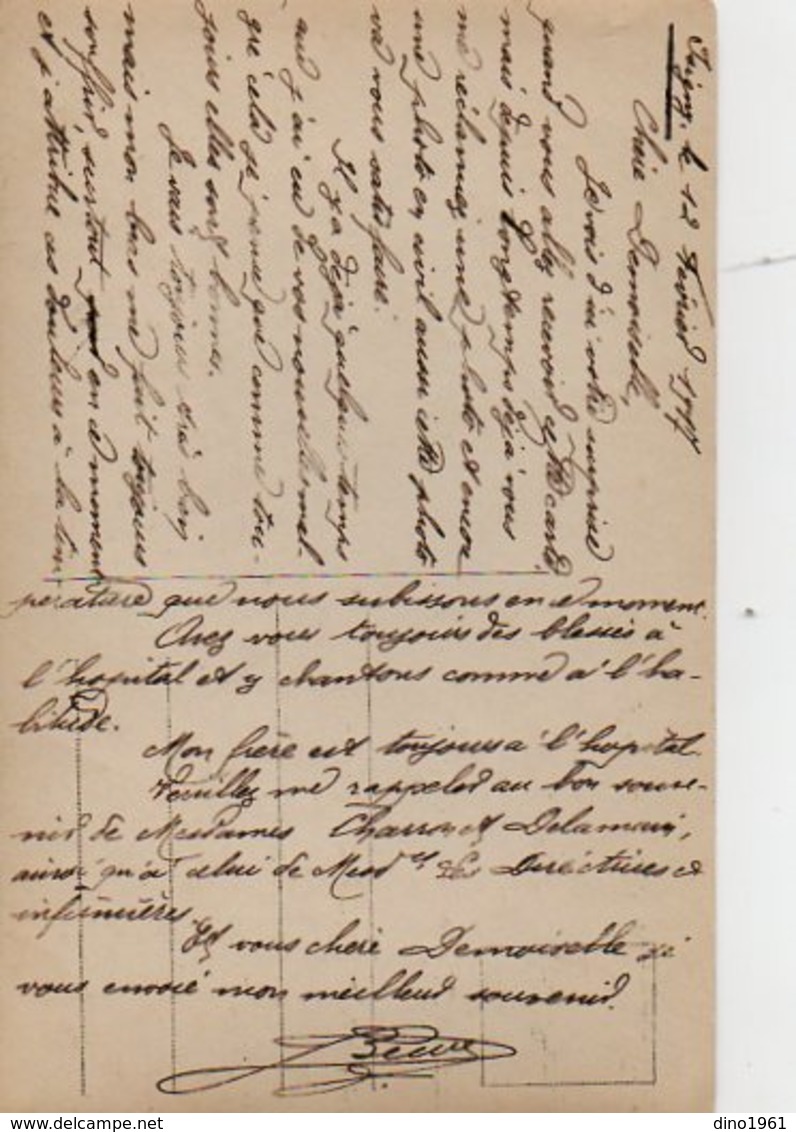 le 12 Février 1917
Chère Demoiselle,
Je vois d'ici votre surprise
quand vous allez recevoir cette carte
mais depuis longtemps déjà vous
me réclamez une photo et encore
une photo en civil aussi cette photo
va vous satisfaire.
Il y a déjà quelque temps
que j'ai eu de vos nouvelles mal-
gré cela je pense que comme tou-
jours elles sont bonnes.
Je vais toujours très bien
mais mon bras me fait toujours
souffrir surtout en ce moment
et j'attribue ces douleurs à la tem
pérature que nous subissons en ce moment.
Avez vous toujours des blessés à
l'hopital et y chantons comme à l'ha-
bitude.
Mon frère est toujours à l'hopital.
Veuillez me rappeler au bon souve-
nir de Mesdames Charron et Delamain,
ainsi qu'à celui de Mesd es les Directrices et
infirmières.
Et vous chère Demoiselle je
vous envoie mon meilleur souvenir.
delcampe.net
dino1961